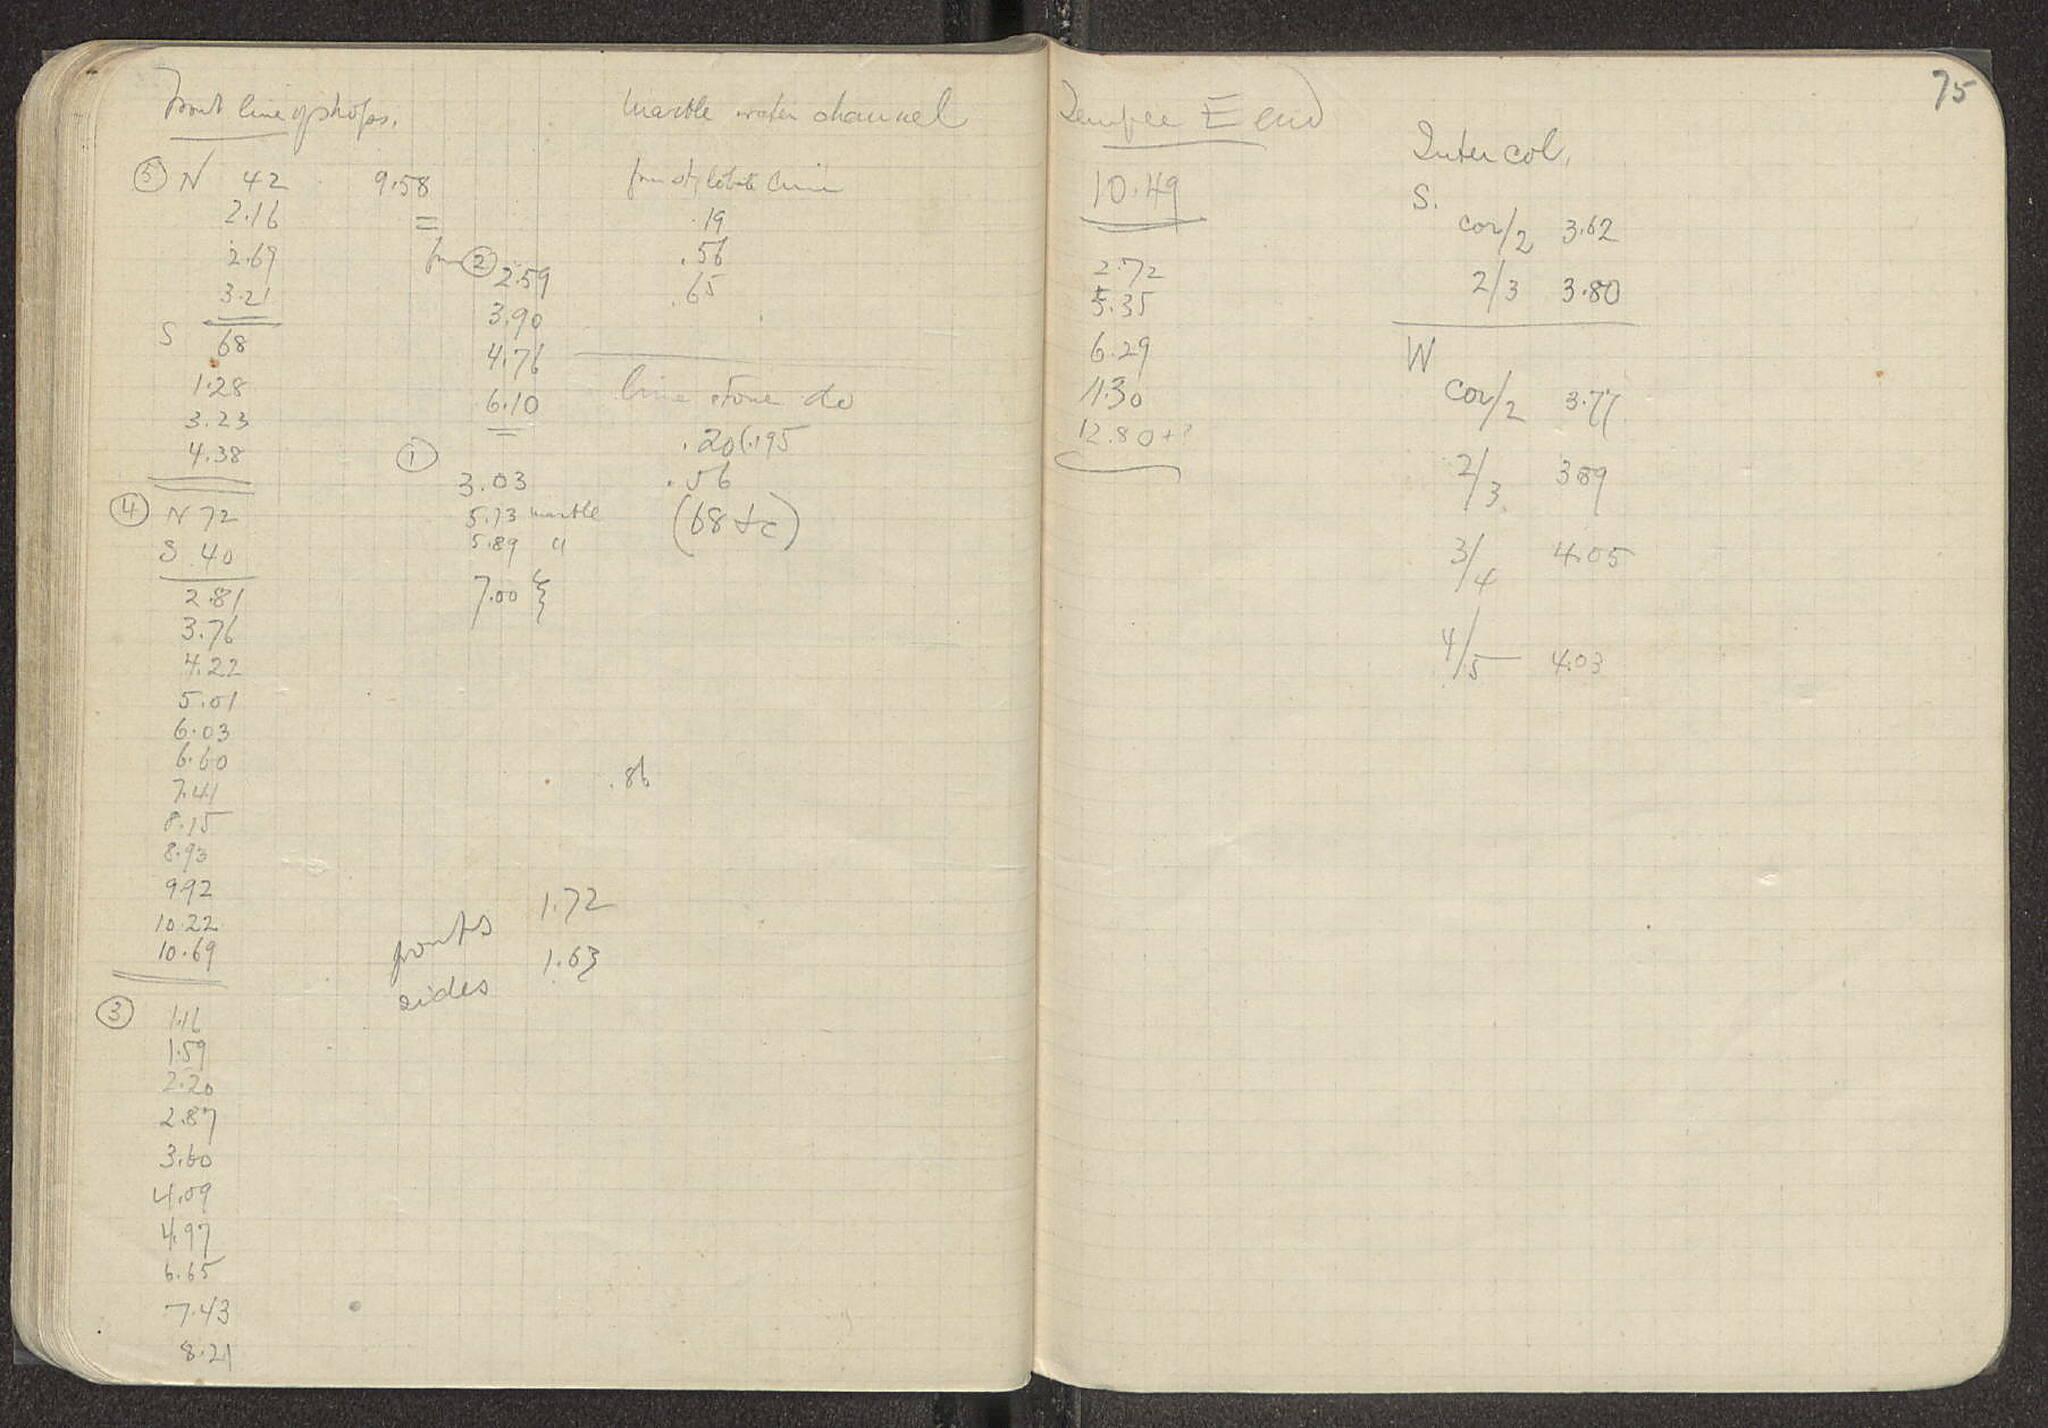 Front line of shops.
⑤ N 42
2.16
2.69
3.21
S 68
1.28
3.23
4.38
④ N 72
S 40
2.81
3.76
4.22
5.01
6.03
6.60
7.41
8.15
8.93
9.92
10.22
10.69
③ 1.16
1.59
2.20
2.87
3.60
4.09
4.97
6.65
7.43
8.21
9.58
from ② 2.59
3.90
4.76
6.10
① 3.03
5.73 marble
5.89 "
7.00
fronts 1.72
sides 1.63
Marble water channel
from stylobate line
.19
.56
.65
lime stone do
.20(.195
.56
(68 &c)
.86
75
Temple E end
10.49
2.72
5.35
6.29
11.30
12.80+?
Inter col.
S.
cor/2 3.62
2/3 3.80
W
cor/2 3.77
2/3 3.89
3/4 4.05
4/5 4.03